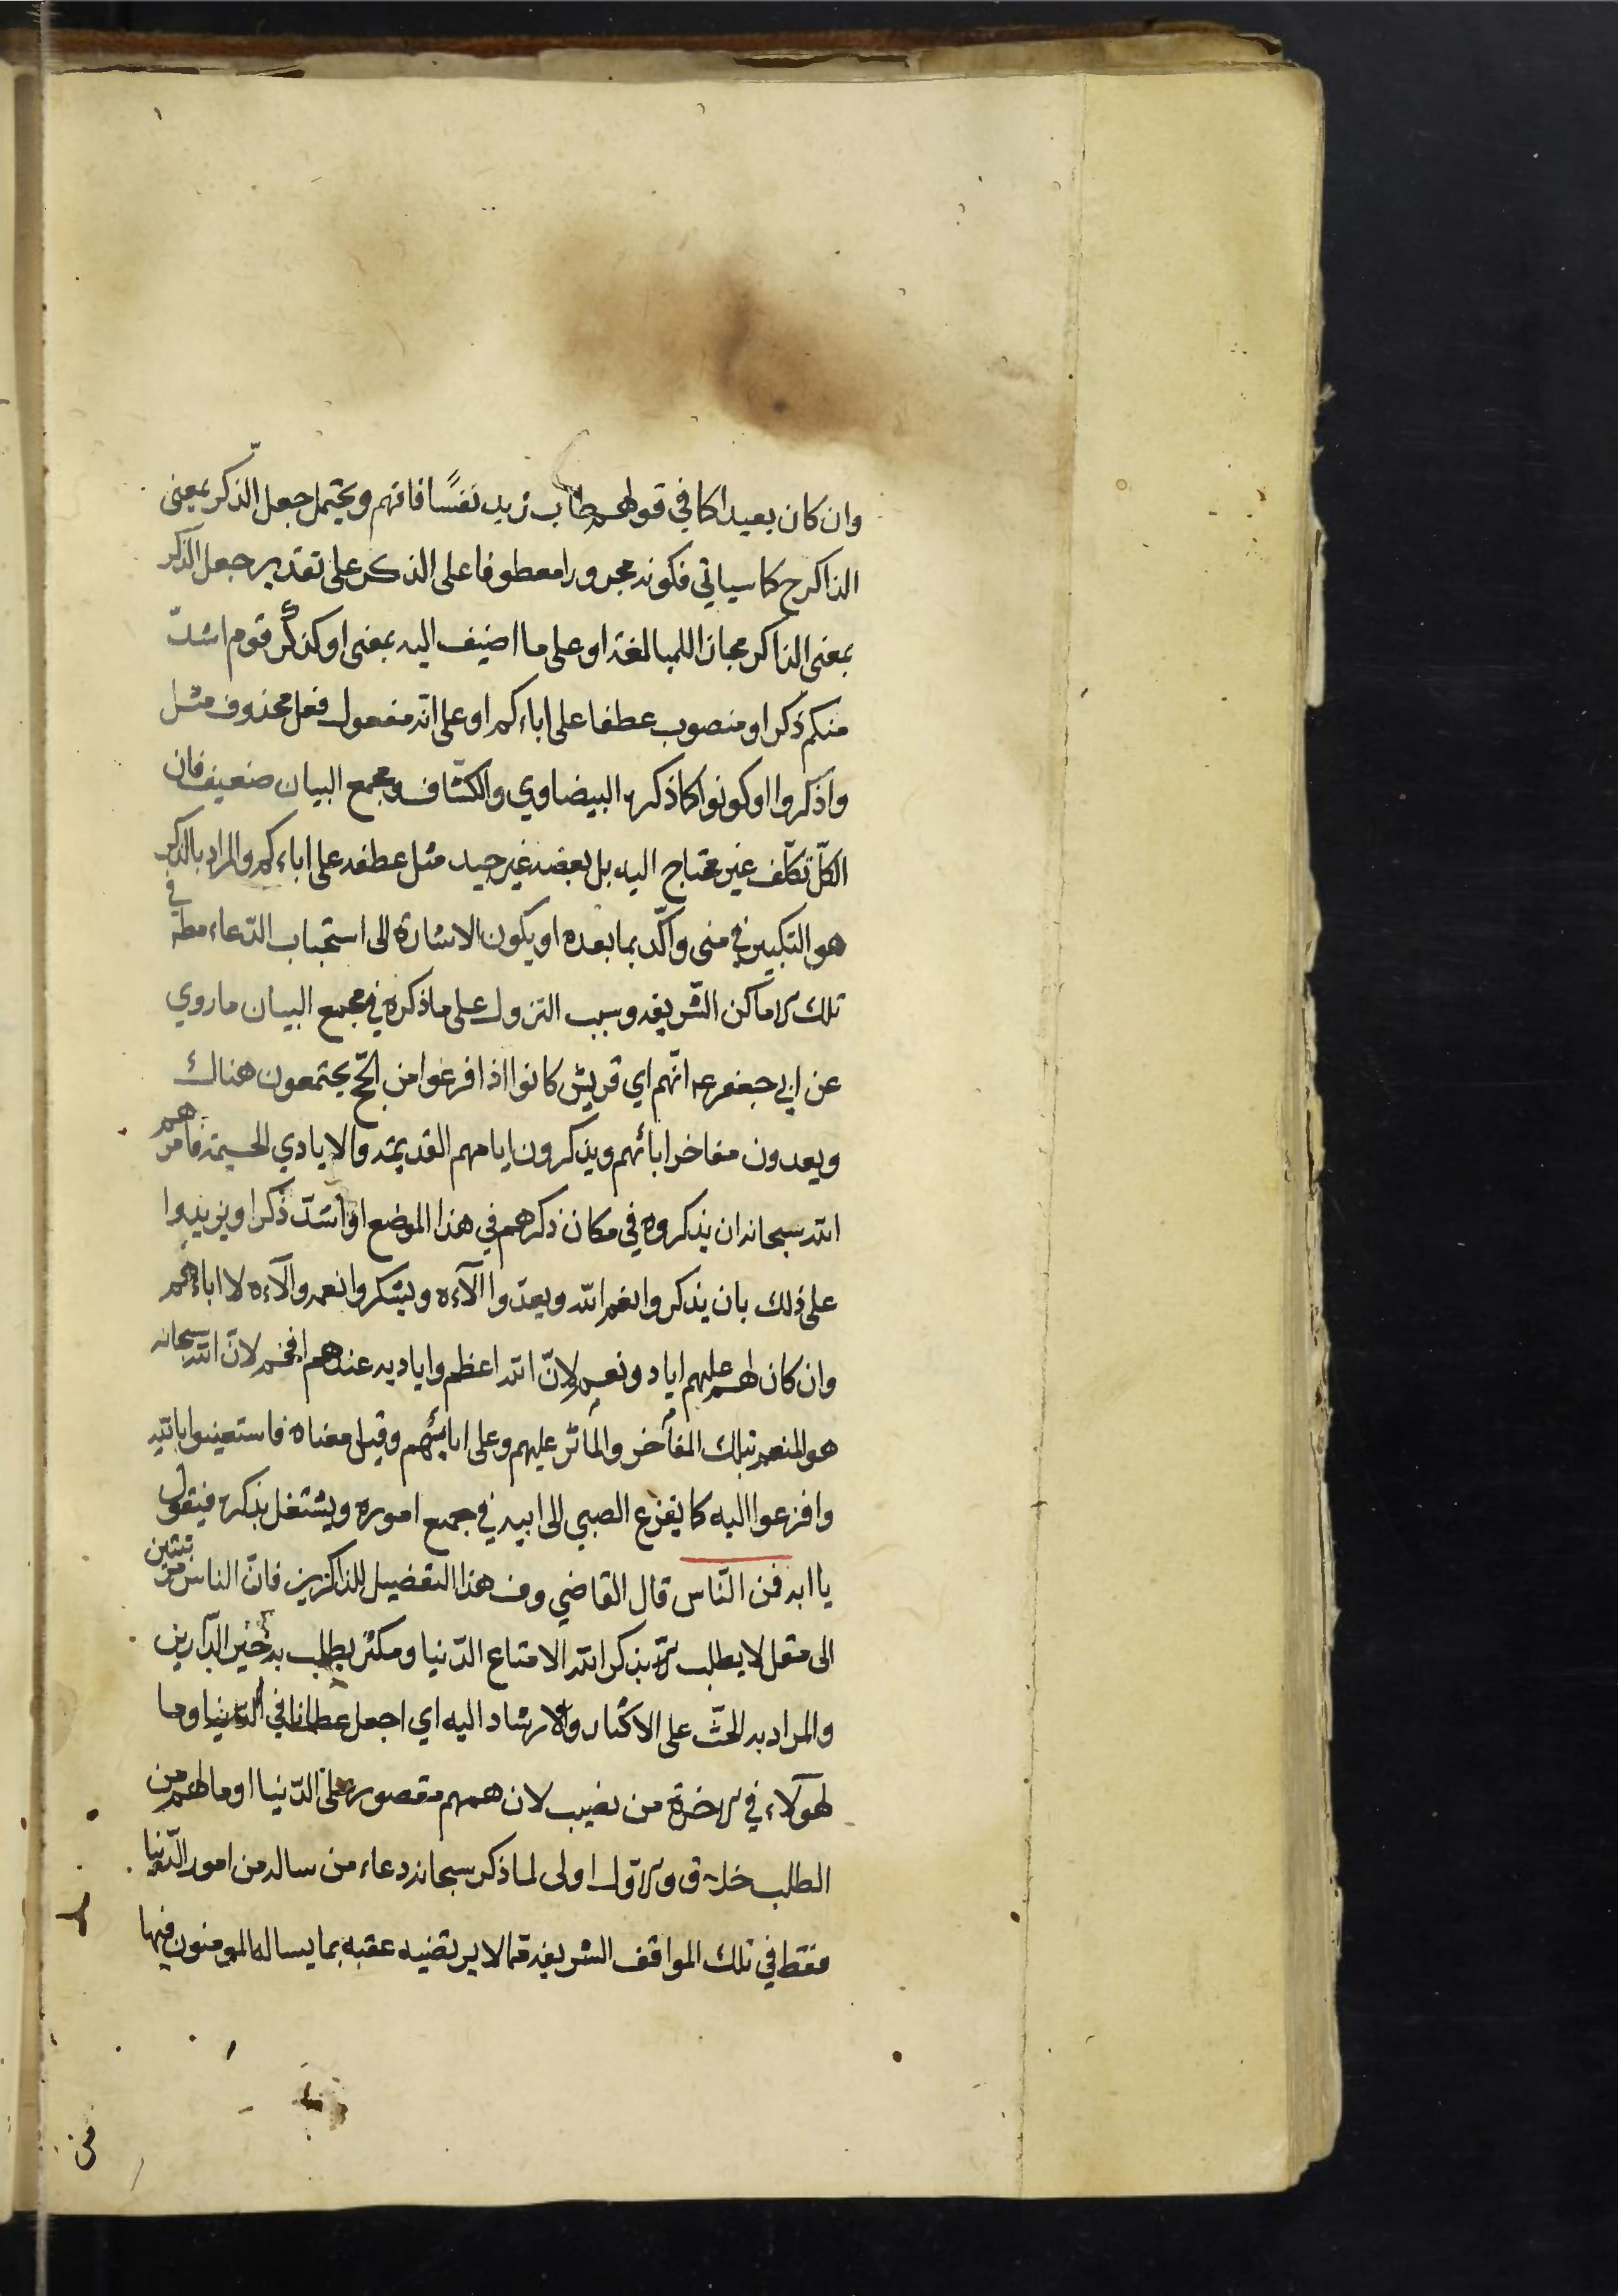 وان كان بعيدا كما في قولهم طاب زيد نفسًا فافهم ويحتمل جعل الذكر بمعنى
الذاكر ح كما سياتي فكونه مجرورا معطوفا على الذكر على تقدير جعل الذكر
بمعنى الذاكر مجازا للمبالغة او على ما اضيف اليه بمعنى او كذكر قوم اشدّ
منكم ذكرا او منصوب عطفا على اباءكم او على انّه مفعول فعل محذوف مثل
واذكروا او كونوا كما ذكره البيضاوي والكشّاف ومجمع البيان ضعيف فان
الكلّ تكلّف غير محتاج اليه بل بعضه غير جيد مثل عطفه على اباءكم والمراد بالذكر
هو التكبير في منى واكّد بما بعده او يكون الاشارة الى استحباب الدّعاء مطه في
تلك الاماكن الشّريفه وسبب النزول على ما ذكره في مجمع البيان ما روي
عن ابي جعفر عه انّهم اي قريش كانوا اذا فرغوا من الحّج يجتمعون هناك
ويعدون مفاخر ابائهم ويذكرون ايامهم القديمة والايادي الجسيمة فامرهم
الله سبحانه ان يذكروه في مكان ذكرهم في هذا الموضع او اشدّ ذكرا ويزيدوا
على ذلك بان يذكروا نعم الله ويعدّوا الآءه ويشكروا نعمه والآءه لا اباءهم
وان كان لهم عليهم اياد ونعم لانّ الله اعظم واياديه عندهم افخم لانّ الله سبحانه
هو المنعم بتلك المفاخر والماثر عليهم وعلى ابائهم وقيل معناه فاستعينوا بالله
وافزعوا اليه كما يفزع الصبي الى ابيه في جميع اموره ويشتغل بذكره فيقول
يا ابه فمن النّاس قال القاضي وف هذا التفضيل للذاكرين فانّ الناس من بين
الى مقل لا يطلب بذكر الله الا متاع الدّنيا ومكثر يطلب به خير الدّارين
والمراد به الحثّ على الاكثار والارشاد اليه اي اجعل عطانا في الدّنيا وما
لهولاء في الاخرة من نصيب لان همهم مقصور على الدّنيا او ما لهم من
الطلب خلاق والاول اولى لما ذكر سبحانه دعاء من ساله من امور الدّنيا
فقط في تلك المواقف الشريفه بما لا يرتضيه عقبه بما يساله المومنون فيها
من